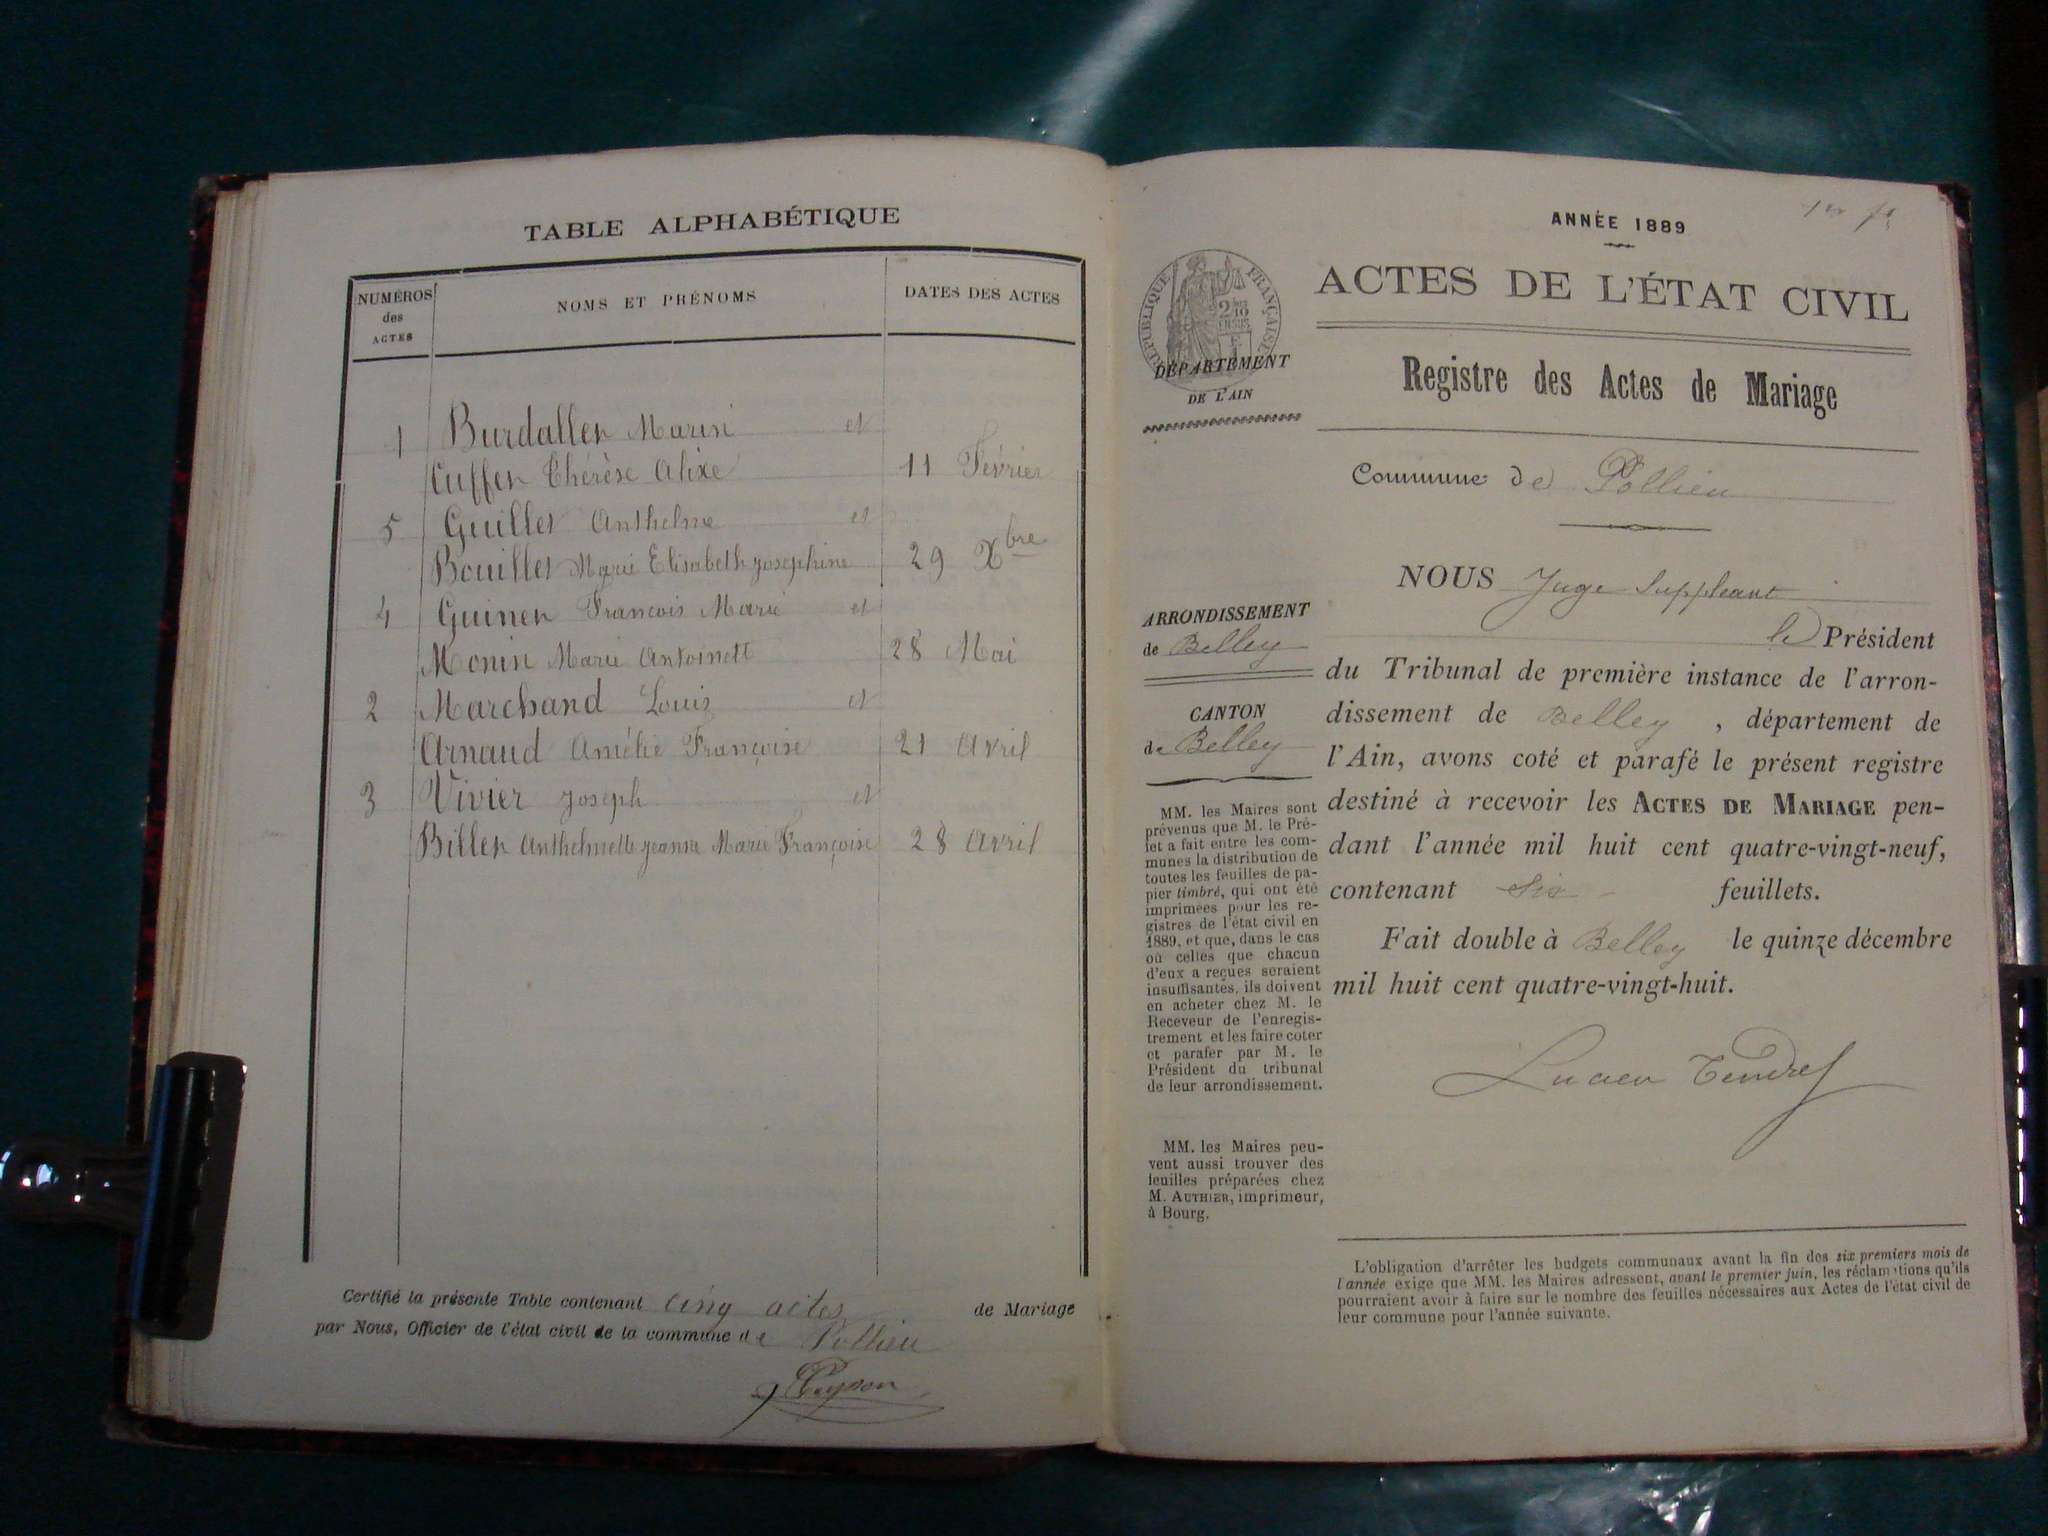 TABLE ALPHABÉTIQUE
NUMÉROS des ACTES
NOMS ET PRÉNOMS
DATES DES ACTES
1 Burdallet Marin et
Cuffet Thérèse Alixe 11 Février
5 Guillet Anthelme et
Bouillet Marie Elisabeth Joséphine 29 Xbre
4 Guinet François Marie et
Monin Marie Antoinett 28 Mai
2 Marchand Louis et
Arnaud Amélie Françoise 21 Avril
3 Vivier Joseph et
Billet Anthelmette Jeanne Marie Françoise 28 Avril
Certifié la présente Table contenant cinq actes de Mariage
par Nous, Officier de l'état civil de la commune de Pollieu
ANNÉE 1889
ACTES DE L'ÉTAT CIVIL
RÉPUBLIQUE FRANÇAISE
DÉPARTEMENT
DE L'AIN
Registre des Actes de Mariage
Commune de Pollieu
ARRONDISSEMENT
de Belley
CANTON
de Belley
MM. les Maires sont
prévenus que M. le Pré-
fet a fait entre les com-
munes la distribution de
toutes les feuilles de pa-
pier timbré, qui ont été
imprimées pour les re-
gistres de l'état civil en
1889, et que, dans le cas
où celles que chacun
d'eux a reçues seraient
insuffisantes, ils doivent
en acheter chez M. le
Receveur de l'enregis-
trement et les faire coter
et parafer par M. le
Président du tribunal
de leur arrondissement.
MM. les Maires peu-
vent aussi trouver des
feuilles préparées chez
M. AUTHIER, imprimeur,
à Bourg.
NOUS Juge Suppléant
le Président
du Tribunal de première instance de l'arron-
dissement de Belley , département de
l'Ain, avons coté et parafé le présent registre
destiné à recevoir les ACTES DE MARIAGE pen-
dant l'année mil huit cent quatre-vingt-neuf,
contenant Six feuillets.
Fait double à Belley le quinze décembre
mil huit cent quatre-vingt-huit.
Lucien Tendret
L'obligation d'arrêter les budgets communaux avant la fin des six premiers mois de
l'année exige que MM. les Maires adressent, avant le premier juin, les réclamations qu'ils
pourraient avoir à faire sur le nombre des feuilles nécessaires aux Actes de l'état civil de
leur commune pour l'année suivante.